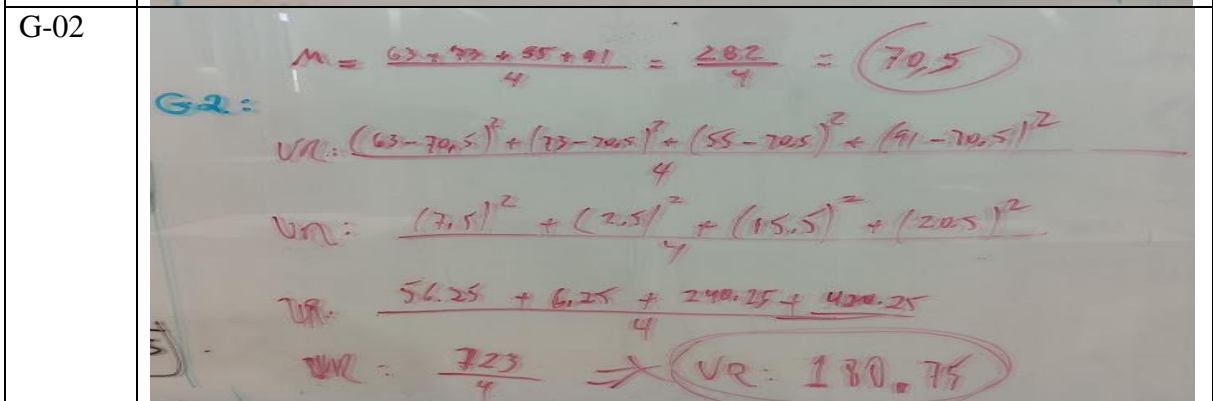 G-02
M = 63 + 73 + 55 + 91 / 4 = 282 / 4 = 70,5
G2:
VR: (63-70,5)² + (73-70,5)² + (55-70,5)² + (91-70,5)² / 4
VR: (7,5)² + (2,5)² + (15,5)² + (20,5)² / 4
VR: 56.25 + 6,25 + 240.25 + 420.25 / 4
VR: 723 / 4 ⇒ VR: 180.75